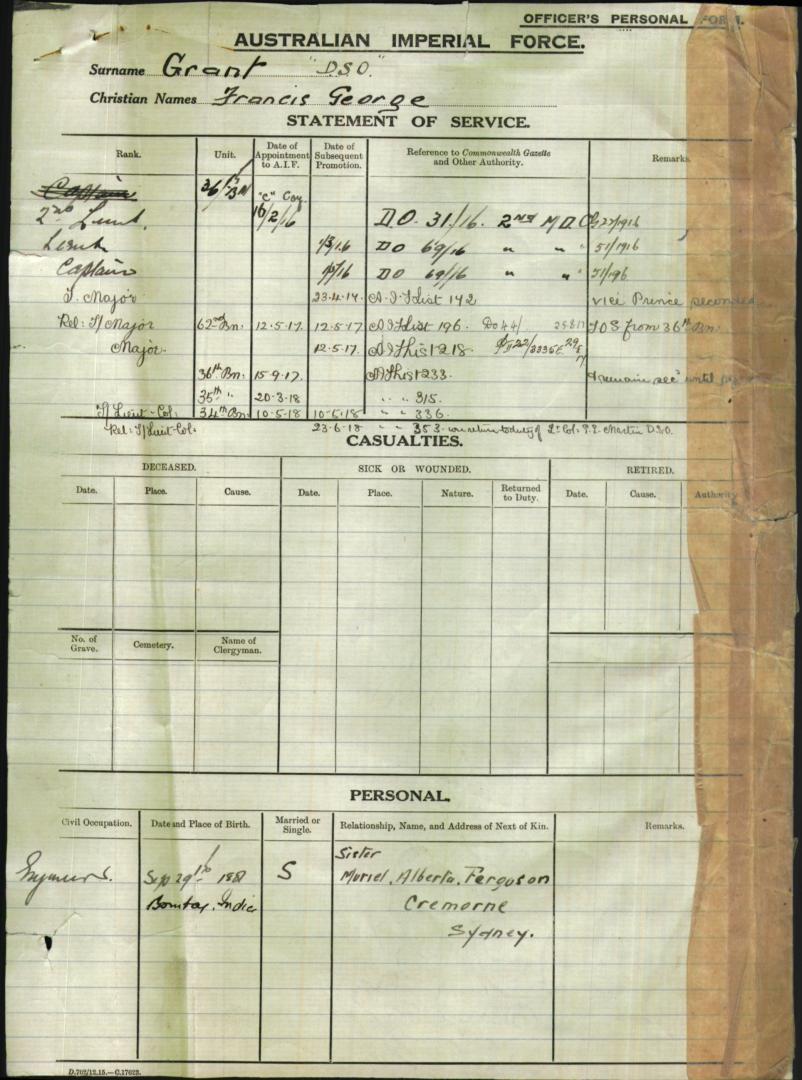 OFFICER'S PERSONAL FORM.
AUSTRALIAN IMPERIAL FORCE.
Surname Grant "D.S.O."
Christian Names Francis George
STATEMENT OF SERVICE.
Rank. Unit. Date of Appointment to A.I.F. Date of Subsequent Promotion. Reference to Commonwealth Gazette and Other Authority. Remarks.
Captain 36th Bn "C" Coy
2nd Lieut. 16/2/16 D.O. 31/16. 2nd M.D.
Lieut DO 69/16 " " " 51/1916
Captain DO 69/16 " "
T. Major 23.4.17. A.I.F List 142 vice Prince seconded
Rel: T/Major 62nd Bn. 12.5.17. 12.5.17 A I F List 196. DO 44/ 25817 TOS from 36th Bn.
Major. 12.5.17. A I F List 218
36th Bn. 15-9-17. A I F List 233. & remain sec until
35th " 20-3-18 " " 315.
T/ Lieut-Col: 34th Bn: 10-5-18 10-5-18 " " 336.
Rel: T/Lieut-Col: 23-6-18 " " 353 on return to duty of Lt Col: Martin D.S.O.
CASUALTIES.
DECEASED. SICK OR WOUNDED. RETIRED.
Date. Place. Cause. Date. Place. Nature. Returned to Duty. Date. Cause. Authority
No. of Grave. Cemetery. Name of Clergyman.
PERSONAL.
Civil Occupation. Date and Place of Birth. Married or Single. Relationship, Name, and Address of Next of Kin. Remarks.
Sister
Sep 29th S Muriel. Alberta. Ferguson
Bombay. India Cremorne
Sydney.
D.702/12.15.—C.17023.